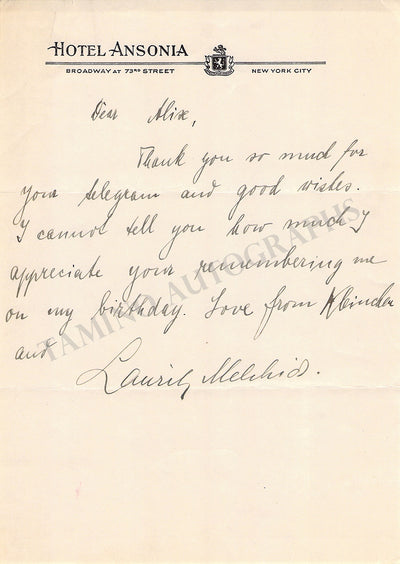 HOTEL ANSONIA
BROADWAY AT 73RD STREET NEW YORK CITY
Dear Alix,
Thank you so much for
your telegram and good wishes.
I cannot tell you how much I
appreciate your remembering me
on my birthday. Love from Kleinchen
and
Lauritz Melchior.
TAMINO AUTOGRAPHS